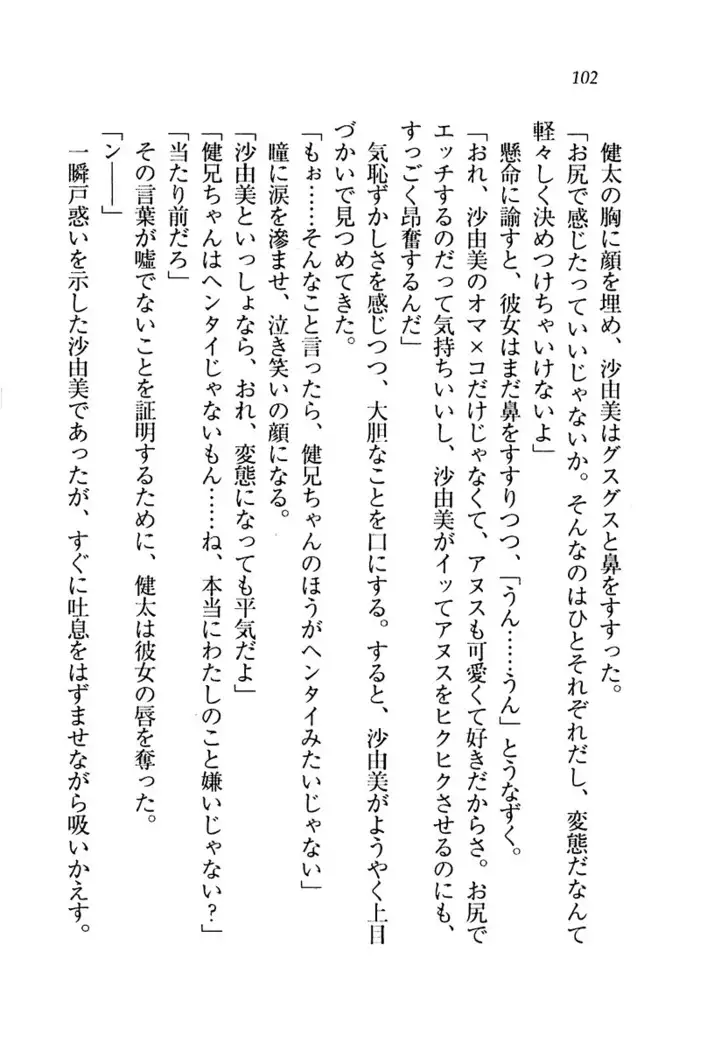 102
健太の胸に顔を埋め、沙由美はグスグスと鼻をすすった。
「お尻で感じたっていいじゃないか。そんなのはひとそれぞれだし、変態だなんて
軽々しく決めつけちゃいけないよ」
懸命に諭すと、彼女はまだ鼻をすすりつつ、「うん……うん」とうなずく。
「おれ、沙由美のオマ×コだけじゃなくて、アヌスも可愛くて好きだからさ。お尻で
エッチするのだって気持ちいいし、沙由美がイッてアヌスをヒクヒクさせるのにも、
すっごく昂奮するんだ」
気恥ずかしさを感じつつ、大胆なことを口にする。すると、沙由美がようやく上目
づかいで見つめてきた。
「もぉ……そんなこと言ったら、健兄ちゃんのほうがヘンタイみたいじゃない」
瞳に涙を滲ませ、泣き笑いの顔になる。
「沙由美といっしょなら、おれ、変態になっても平気だよ」
「健兄ちゃんはヘンタイじゃないもん……ね、本当にわたしのこと嫌いじゃない？」
「当たり前だろ」
その言葉が嘘でないことを証明するために、健太は彼女の唇を奪った。
「ン――」
一瞬戸惑いを示した沙由美であったが、すぐに吐息をはずませながら吸いかえす。